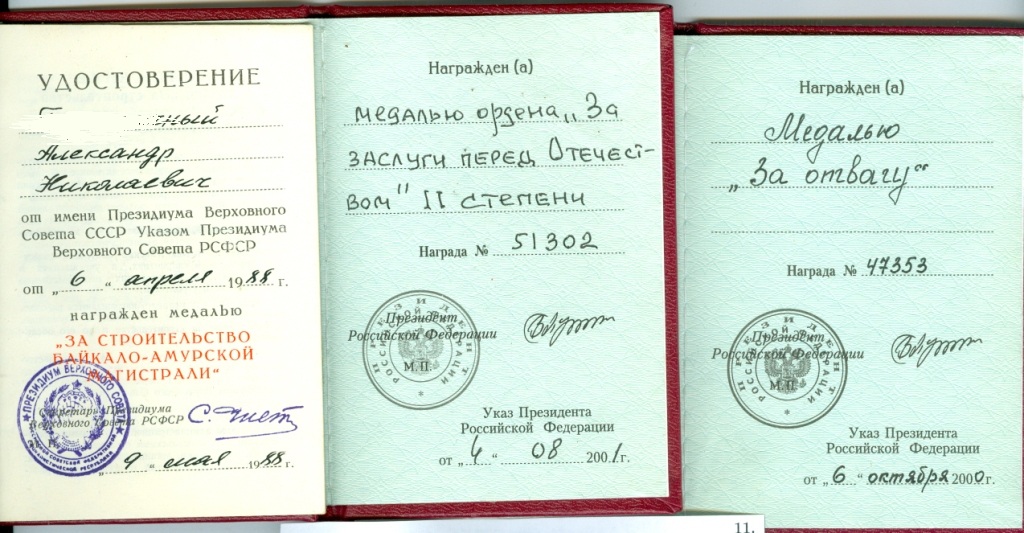 УДОСТОВЕРЕНИЕ
Александр
Николаевич
от имени Президиума Верховного
Совета СССР Указом Президиума
Верховного Совета РСФСР
от „ 6 “ апреля 1988 г.
награжден медалью
„ЗА СТРОИТЕЛЬСТВО
БАЙКАЛО-АМУРСКОЙ
МАГИСТРАЛИ“
Секретарь Президиума
Верховного Совета РСФСР
ПРЕЗИДИУМ ВЕРХОВНОГО СОВЕТА
„ 9 “ мая 1988 г.
Награжден (а)
медалью ордена „За
заслуги перед Отечест-
вом" II степени
Награда № 51302
Президент
Российской Федерации
М.П.
ПРЕЗИДЕНТ
РОССИЙСКОЙ ФЕДЕРАЦИИ
Указ Президента
Российской Федерации
от „ 4 “ 08 2001 г.
Награжден (а)
Медалью
„За отвагу“
Награда № 47353
Президент
Российской Федерации
М.П.
ПРЕЗИДЕНТ
РОССИЙСКОЙ ФЕДЕРАЦИИ
Указ Президента
Российской Федерации
от „ 6 “ октября 2000 г.
11.